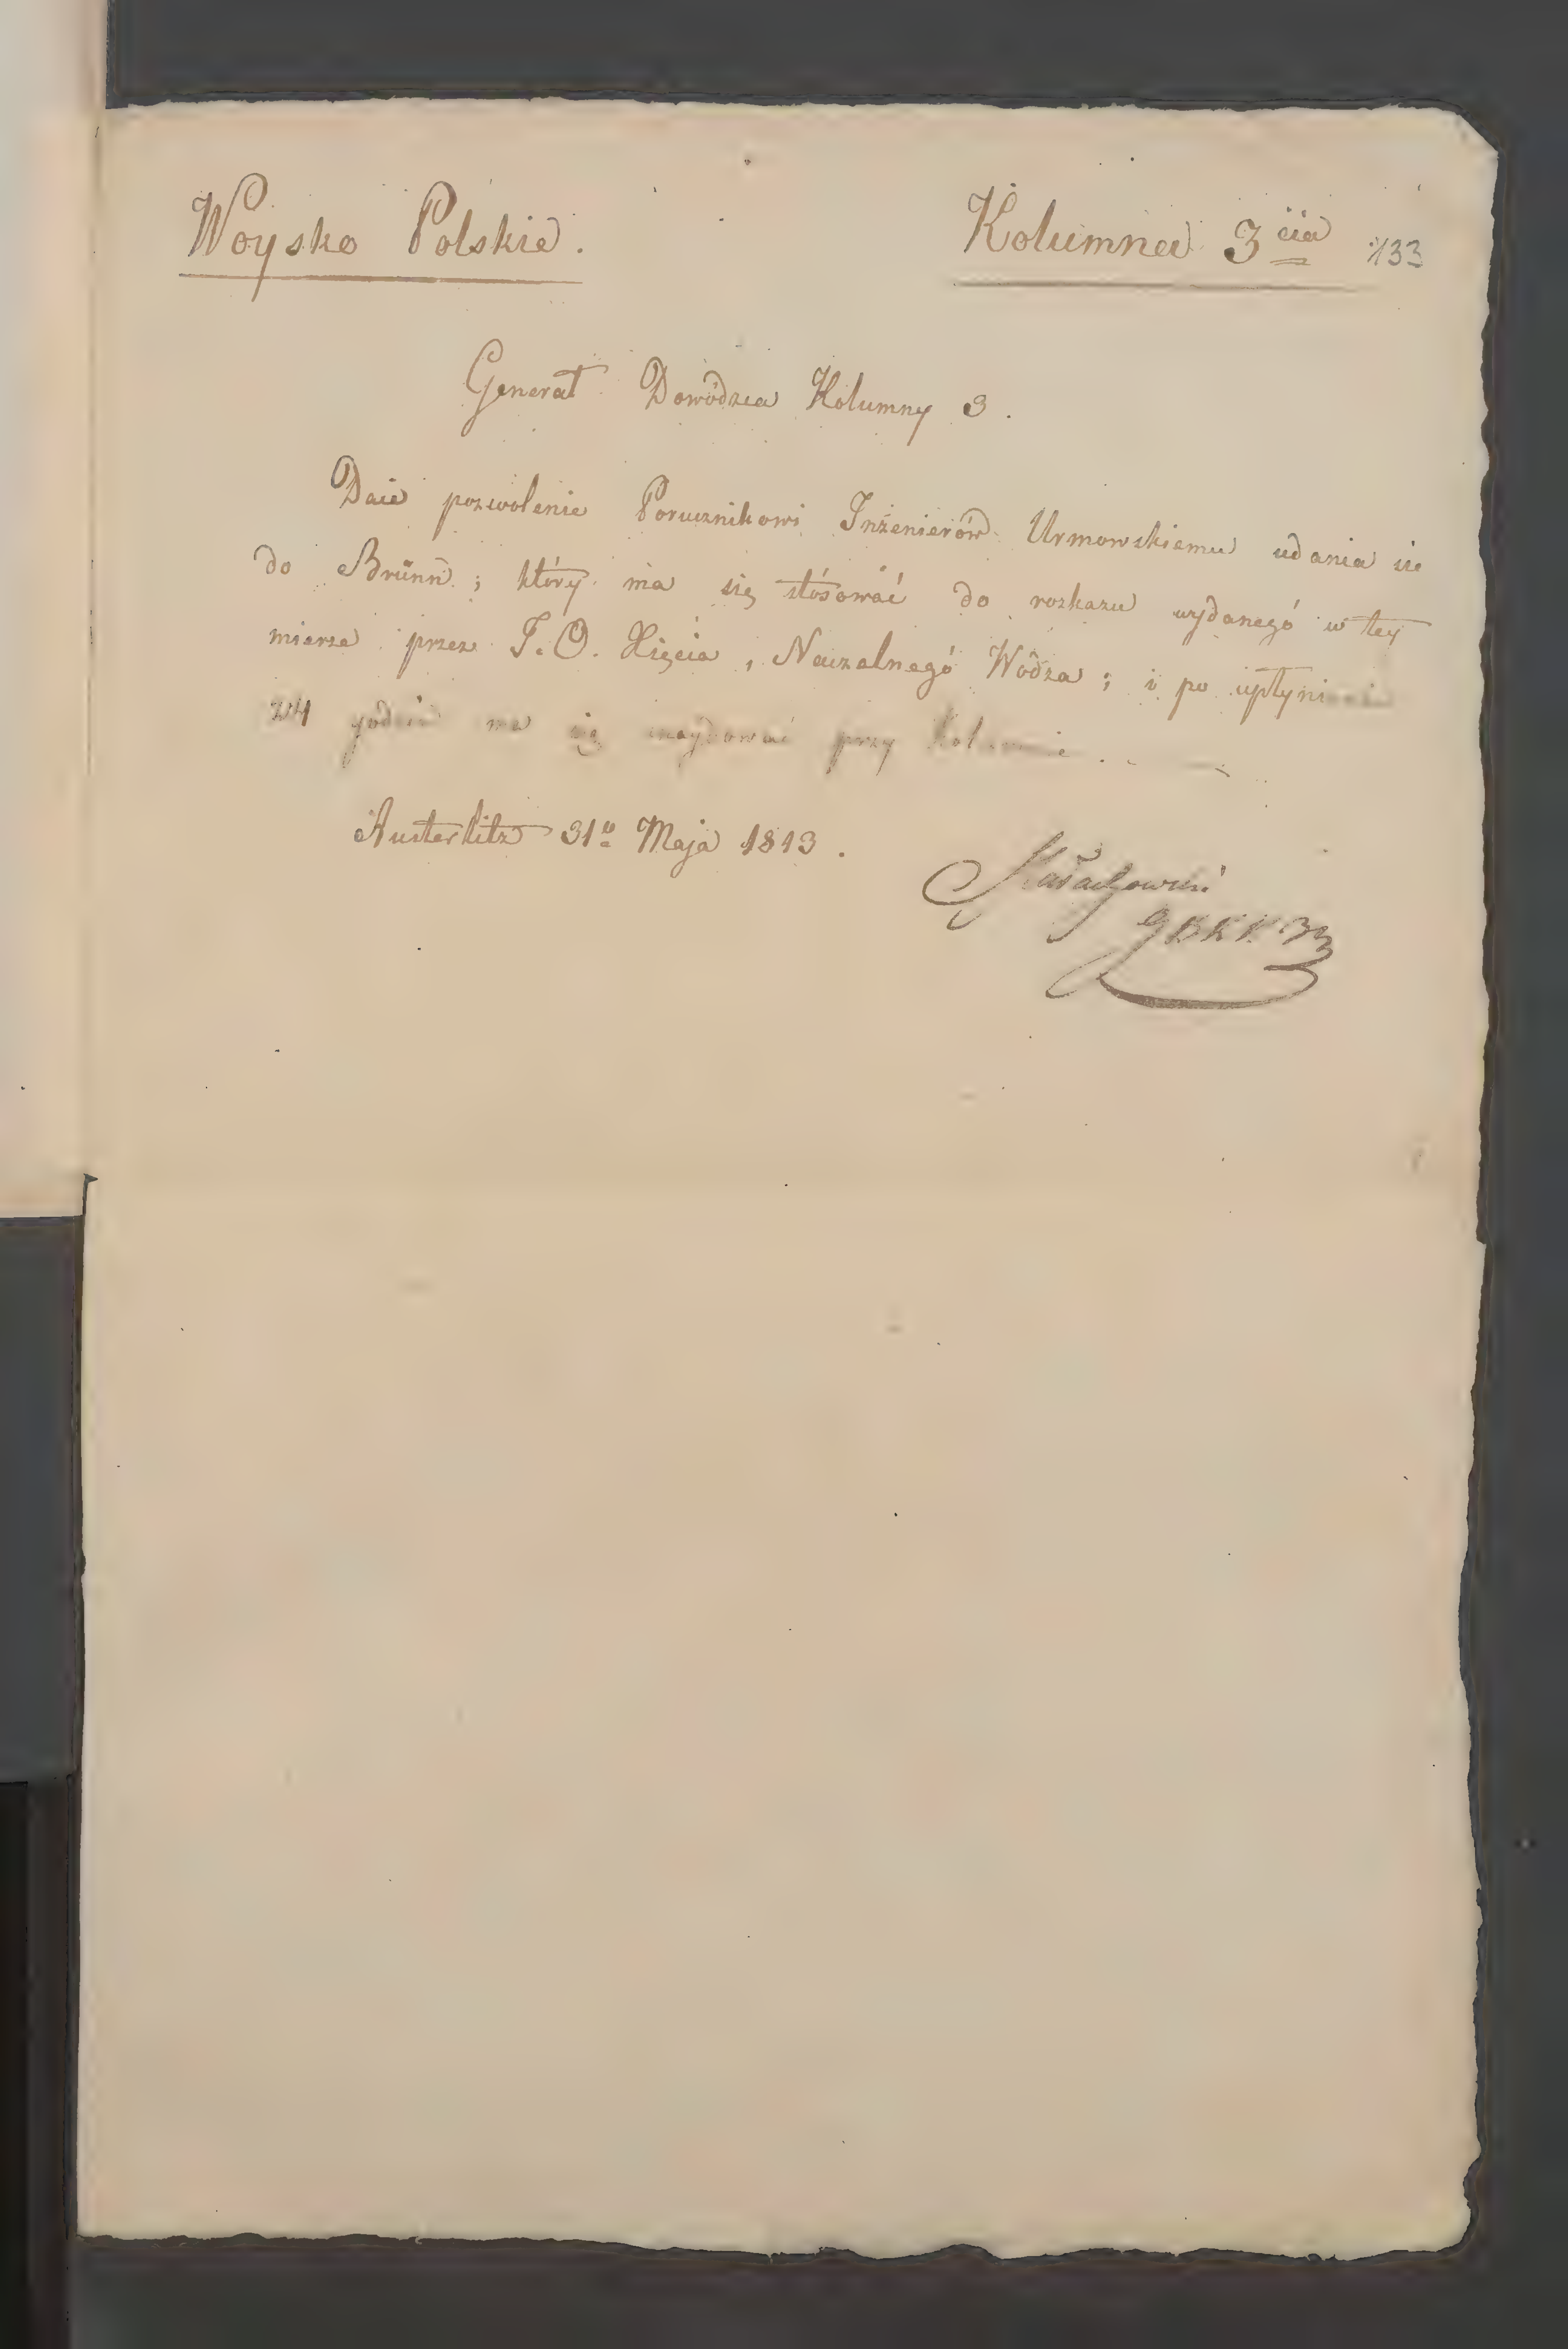 Woysko Polskie.
Kolumna 3cia 133
Generał Dowódzca Kolumny 3.
Daie pozwolenie Porucznikowi Inżenierów Urmowskiemu udania sie
do Brünn; który ma się stósować do rozkazu wydanegó w tey
mierze przez J.O. Xięcia, Naczalnegó Wódza; i po upłynieniu
24 godzin ma się znaydować przy Kolumnie.
Austerlitz 31o Maja 1813.
Małachowski
GBKK3